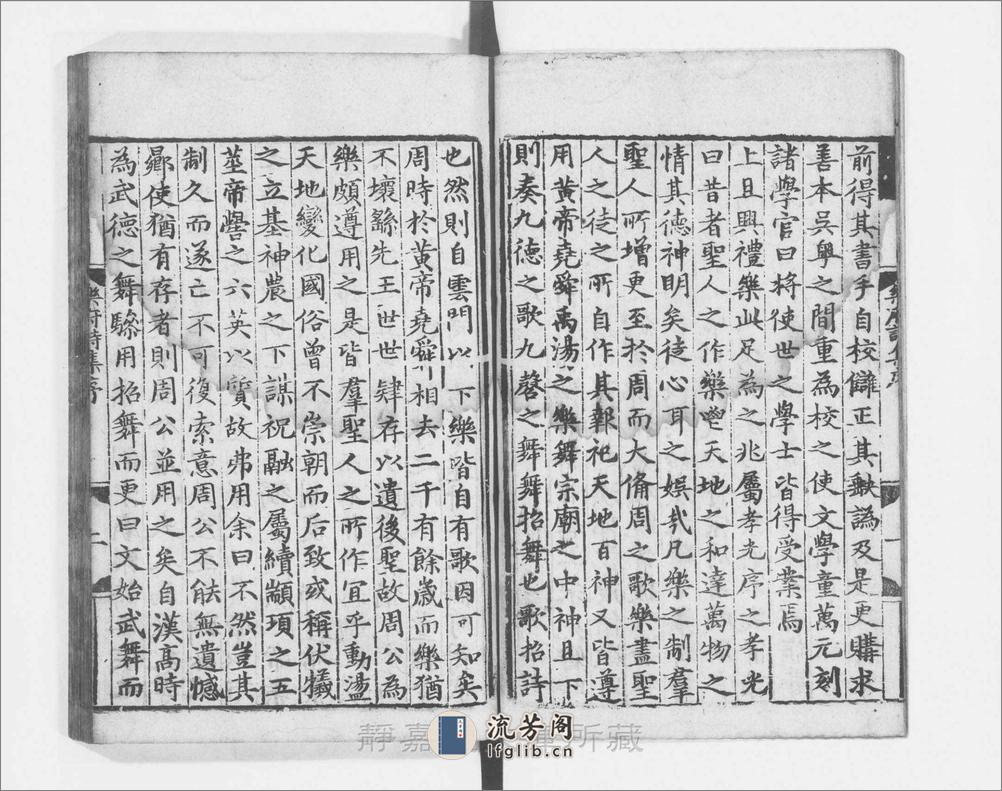 前得其書手自校讎正其歟譌及是更購求
善本吳粤之間重為校之使文學童萬元刻
諸學官曰將使世之學士皆得受業焉
上且興禮樂此足為之兆屬孝光序之孝光
曰昔者聖人之作樂天地之和達萬物之
情其德神明矣徒心耳之娛㦲凡樂之制羣
聖人所增更至於周而大俻周之歌樂盡聖
人之徒之所自作其郊祀天地百神又皆遵
用黄帝堯舜禹湯之樂舞宗廟之中神且下
則奏九德之歌九磬之舞舞招舞也歌招詩
也然則自雲門以下樂皆自有歌因可知矣
周時於黄帝堯舜相去二千有餘歳而樂猶
不壞繇先王世世肄存以遺後聖故周公為
樂頗遵用之是皆羣聖人之所作宜乎動盪
天地變化國俗曾不崇朝而后致或稱伏犧
之立基神農之下謀祝融之屬續顓頊之五
莖帝嚳之六英以質故弗用余曰不然豈其
制久而遂亡不可復索意周公不能無遺憾
鄉使猶有存者則周公並用之矣自漢高時
為武德之舞驂用招舞而更曰文始武舞而
樂府詩集序
二
流芳阁
lfglib.cn
靜嘉 所藏